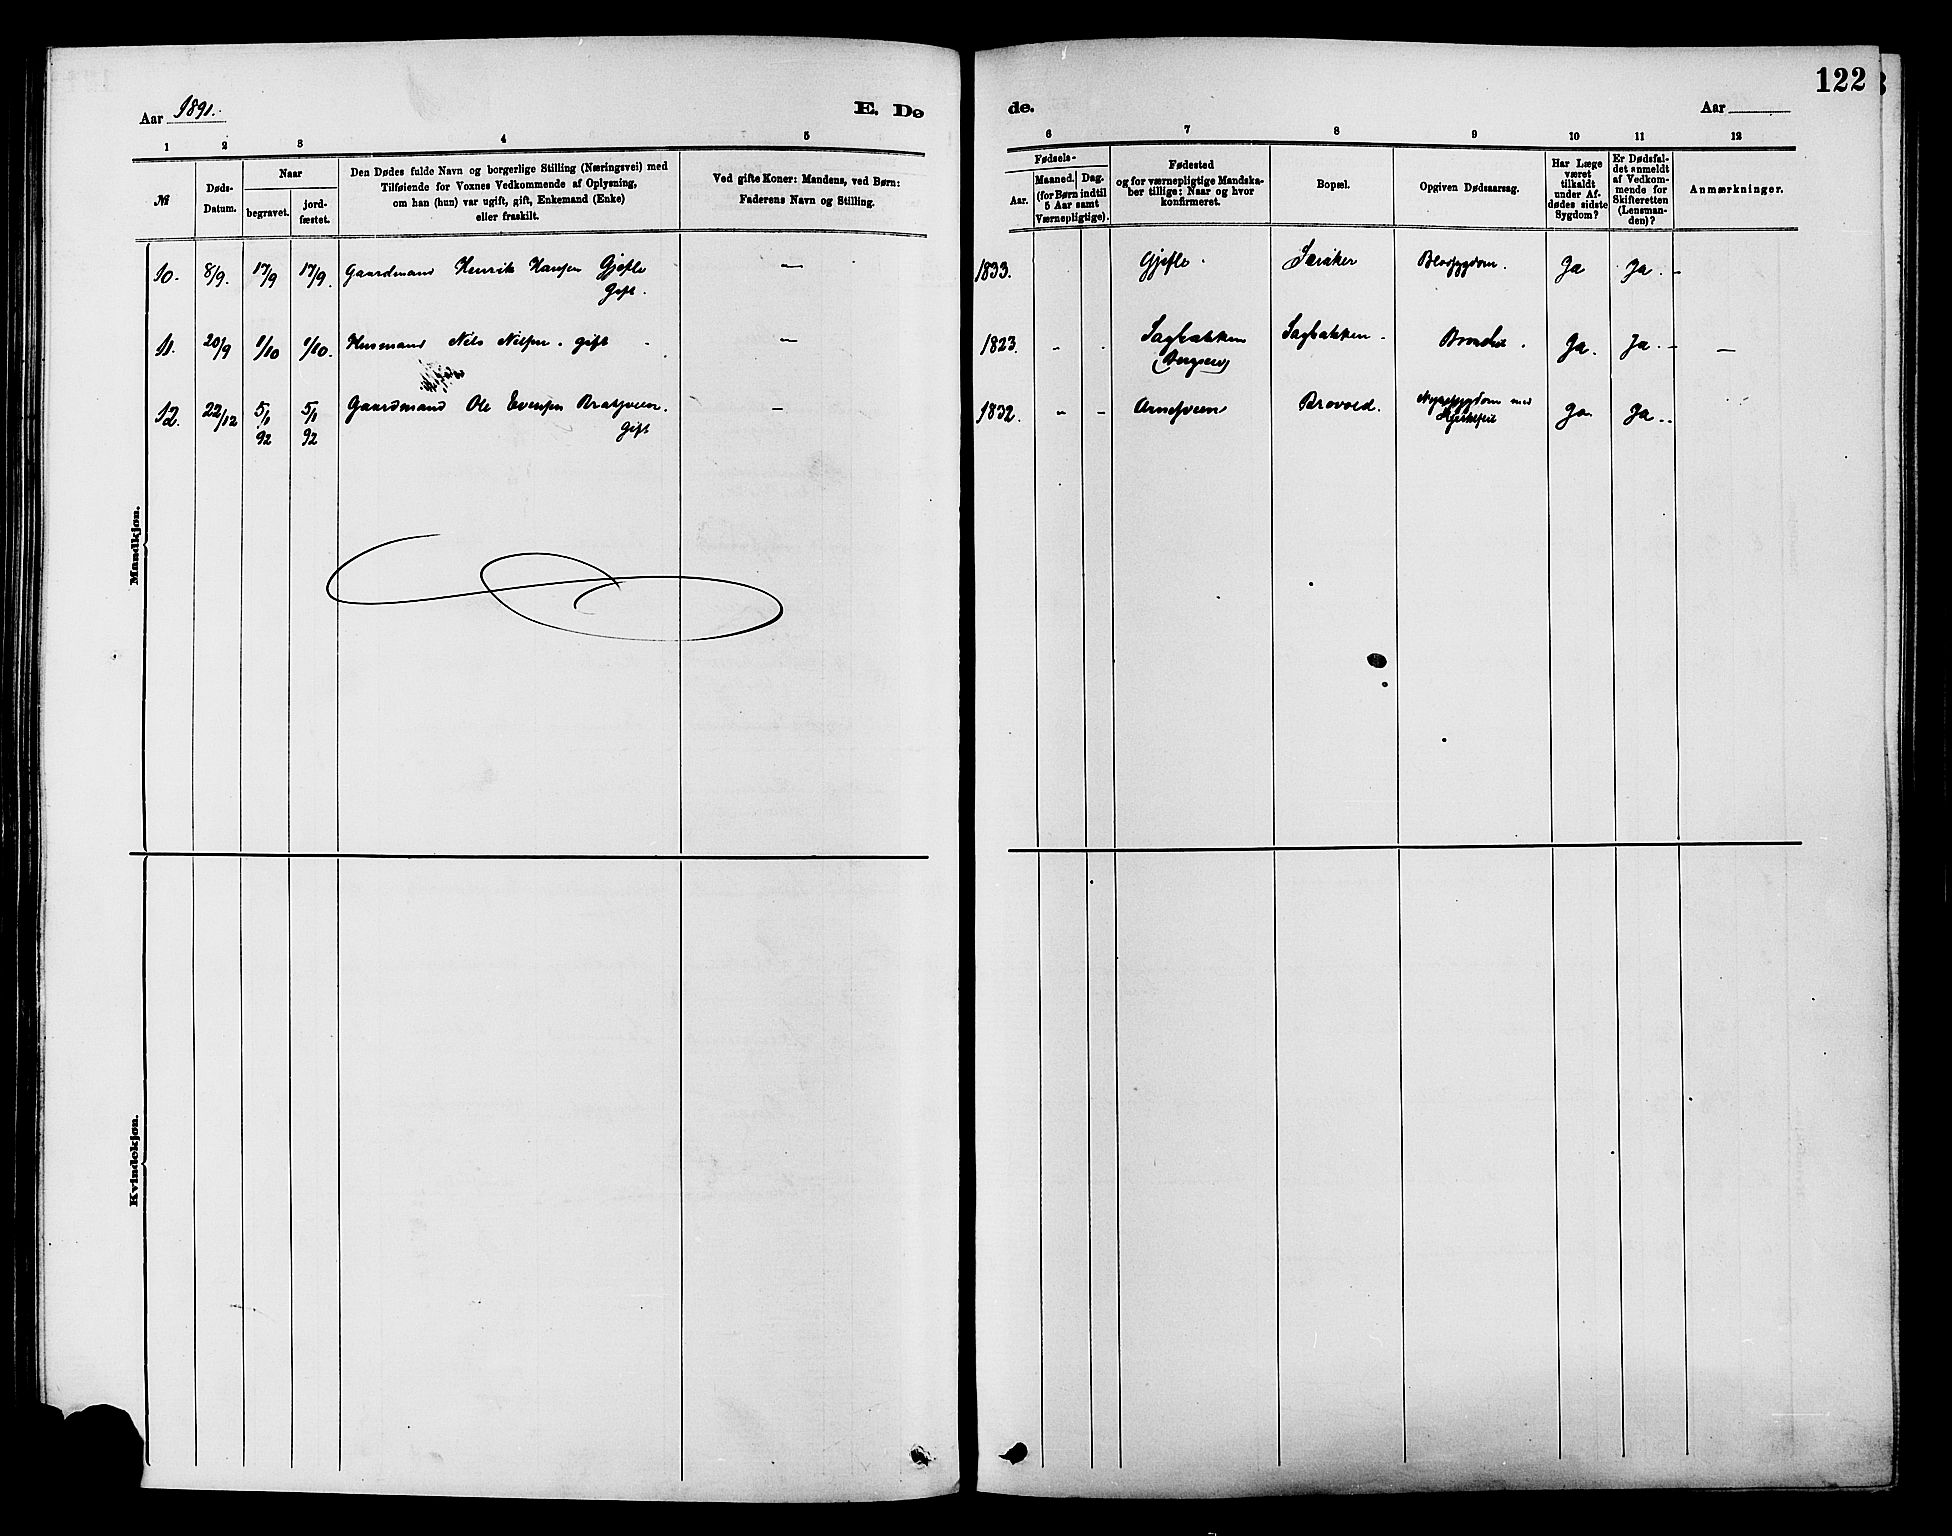 122
Aar 1891.
E. Dø
de.
Aar
1 2 3 4 5
6 7 8 9 10 11 12
№
Døds-
Datum.
Naar
begravet.
jord-
fæstet.
Den Dødes fulde Navn og borgerlige Stilling (Næringsvei) med
Tilføiende for Voxnes Vedkommende af Oplysning,
om han (hun) var ugift, gift, Enkemand (Enke)
eller fraskilt.
Ved gifte Koner: Mandens, ved Børn:
Faderens Navn og Stilling.
Fødsels-
Aar.
Maaned. Dag.
(for Børn indtil
5 Aar samt
Værnepligtige).
Fødested
og for værnepligtige Mandska-
ber tillige: Naar og hvor
konfirmeret.
Bopæl.
Opgiven Dødsaarsag.
Har Læge
været
tilkaldt
under Af-
dødes sidste
Sygdom?
Er Dødsfal-
det anmeldt
af Vedkom-
mende for
Skifteretten
(Lensman-
den)?
Anmærkninger.
Mandkjøn.
10. 8/9. 17/9 17/9. Gaardmand Henrik Hansen Gjefle — 1833. Gjefle. Blodsygdom. Ja Ja. -
Gift.
11. 20/9 1/10 1/10. Husmand Nils Nilsen. gift — 1823. - . Sagbakken Sagbakken. Ja. Ja. - —
12. 22/12 5/1 5/1 Gaardmand Ole Evensen - 1832. - - Brovold. Nyresygdom med Ja Ja..
92 92 Gift Hjertefeil
Kvindekjøn.